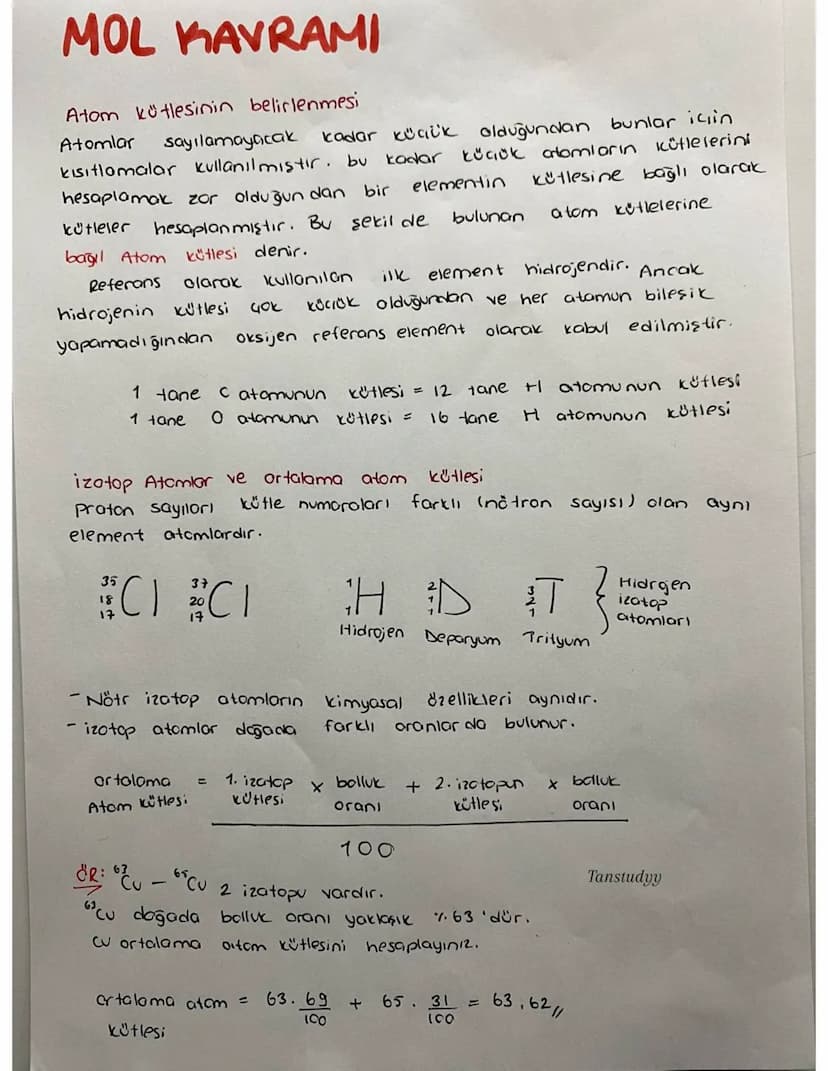 MOL KAVRAMI
Atom kütlesinin belirlenmesi
Atomlar sayılamayacak kadar küçük olduğundan bunlar için
kısıtlamalar kullanılmıştır. bu kadar küçük atomların kütlelerini
hesaplamak zor olduğundan bir elementin kütlesine bağlı olarak
kütleler hesaplanmıştır. Bu şekilde bulunan atom kütlelerine
bağıl Atom kütlesi denir.
Referans olarak kullanılan ilk element hidrojendir. Ancak
hidrojenin kütlesi çok küçük olduğundan ve her atomun bileşik
yapamadığından oksijen referans element olarak kabul edilmiştir.
1 tane C atomunun kütlesi = 12 tane H atomunun kütlesi
1 tane O atomunun kütlesi = 16 tane H atomunun kütlesi
izotop Atomlar ve ortalama atom kütlesi
Proton sayıları kütle numaraları farklı (nötron sayısı) olan aynı
element atomlardır.
35 18 17 Cl 37 20 17 Cl 1 1 H 2 1 1 D 3 2 1 T } Hidrojen
izotop
atomları
Hidrojen Deporyum Trityum
- Nötr izotop atomların kimyasal özellikleri aynıdır.
- izotop atomlar doğada farklı oranlarda bulunur.
ortalama = 1. izotop x bolluk + 2. izotopun x bolluk
Atom kütlesi kütlesi oranı kütlesi oranı
100
ÖR: 63Cu - 65Cu 2 izotopu vardır.
Tanstudyy
63Cu doğada bolluk oranı yaklaşık %63'dür.
Cu ortalama atom kütlesini hesaplayınız.
ortalama atom = 63. 69/100 + 65. 31/100 = 63,62//
kütlesi